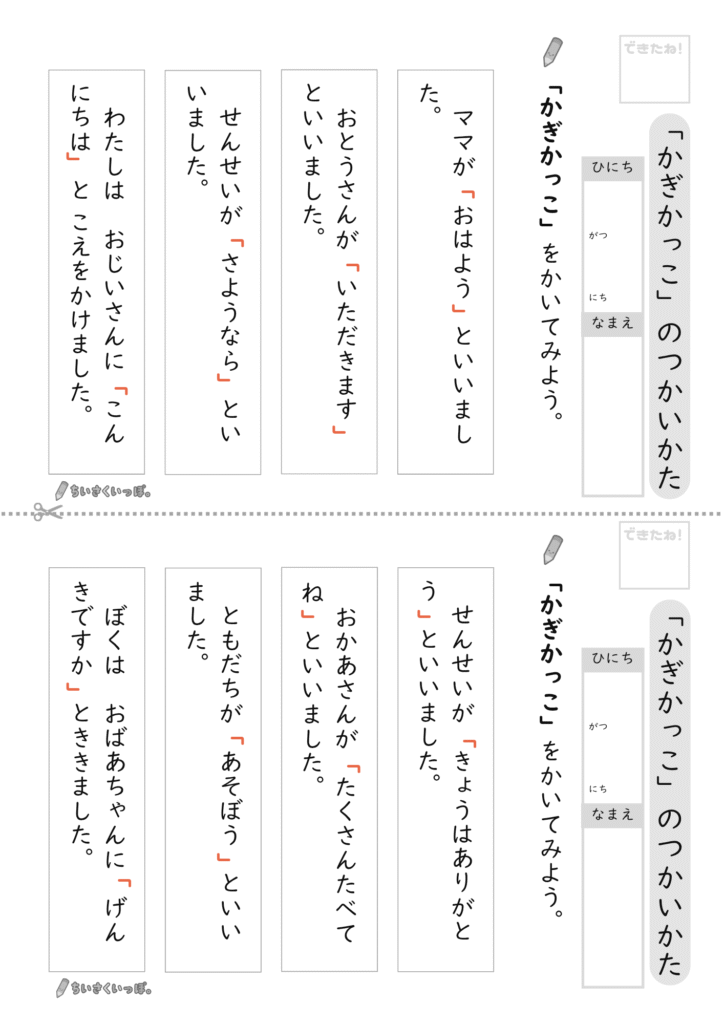 できたね!
「かぎかっこ」のつかいかた
ひにち
がつ
にち
なまえ
「かぎかっこ」をかいてみよう。
ママが「おはよう」といいまし
た。
おとうさんが「いただきます」
といいました。
せんせいが「さようなら」とい
いました。
わたしは　おじいさんに「こん
にちは」と こえをかけました。
ちいさくいっぽ。
できたね!
「かぎかっこ」のつかいかた
ひにち
がつ
にち
なまえ
「かぎかっこ」をかいてみよう。
せんせいが「きょうはありがと
う」といいました。
おかあさんが「たくさんたべて
ね」といいました。
ともだちが「あそぼう」といい
ました。
ぼくは　おばあちゃんに「げん
きですか」とききました。
ちいさくいっぽ。